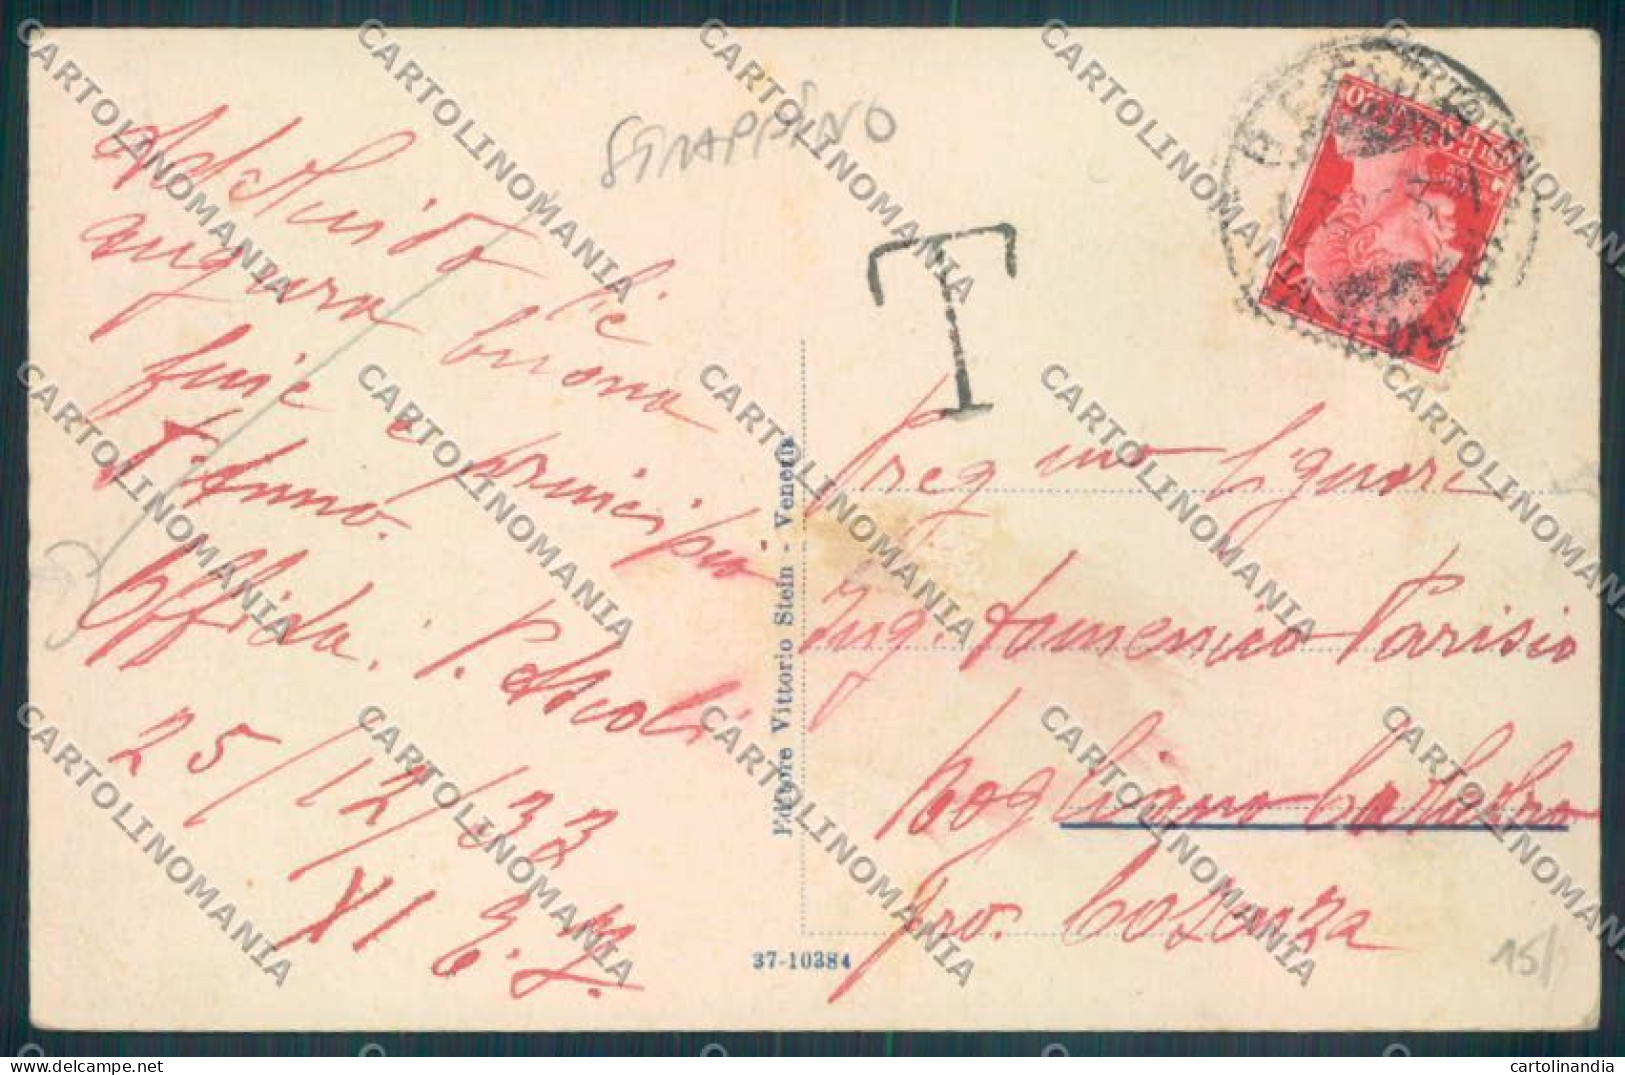 STRAPPINO
T
Adeluida Le
augura buona
fine e principio
d'Anno.
Offida. P. Ascoli
25/12/933
XI E. F.
Editore Vittorio Stein - Venezia
37-10384
Preg mo Signore
Ing. Domenico Parisio
Rogliano Calabro
pro. Cosenza
15/
CARTOLINOMANIA
cartolinandia